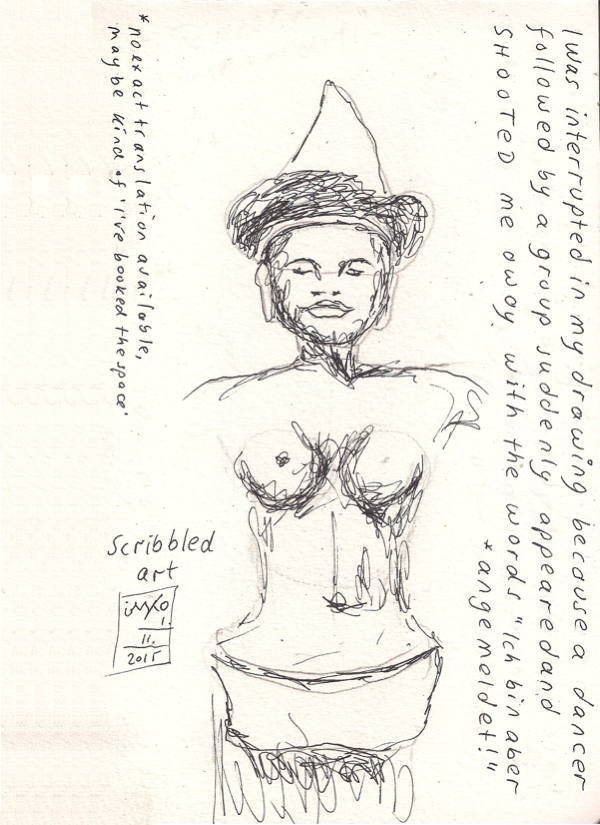 I was interrupted in my drawing because a dancer
followed by a group suddenly appeared and
SHOOTED me away with the words "Ich bin aber
*angemeldet!"
*no exact translation available,
maybe kind of 'I've booked the space'
Scribbled
art
1.
11.
2015